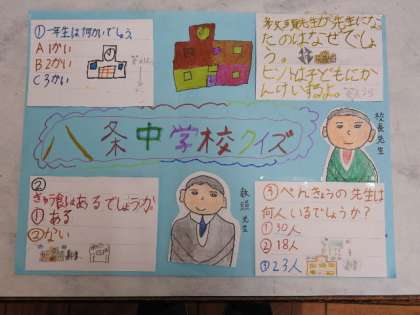 ①一年生は何かいでしょう
Aⅰかい
B2かい
C3かい
先生が先生にな
たのはなぜでしょ
う。
ヒントは子どもにか
んけいするよ。
八条中学校クイズ
校長先生
②
きゅう食はあるでしょうか
①ある
②ない
教頭先生
③べんきょうの先生は
何人いるでしょうか？
①30人
②18人
③23人